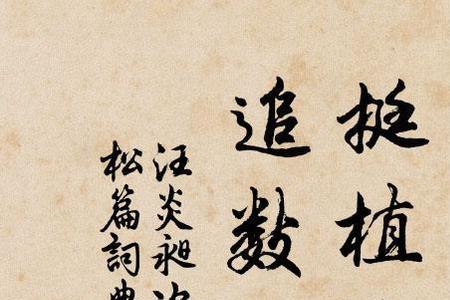 挺植
追数
汪炎昶次
松篇詞典